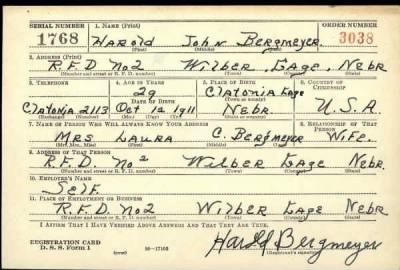 SERIAL NUMBER 1. NAME (Print) ORDER NUMBER
1768 HAROLD JOHN BERGMEYER. 3038
(First) (Middle) (Last)
2. ADDRESS (Print)
R.F.D. No2 WILBER, GAGE, NEBR
(Number and street or R. F. D. number) (Town) (County) (State)
3. TELEPHONE 4. AGE IN YEARS 5. PLACE OF BIRTH 6. COUNTRY OF CITIZENSHIP
29 Clatonia Gage
DATE OF BIRTH (Town or county)
Clatonia 2113 Oct 12 1911 NEBR. U.S.A
(Exchange) (Number) (Mo.) (Day) (Yr.) (State or country)
7. NAME OF PERSON WHO WILL ALWAYS KNOW YOUR ADDRESS 8. RELATIONSHIP OF THAT PERSON
MRS LAURA C. BERGMEYER WIFE.
(Mr., Mrs., Miss) (First) (Middle) (Last)
9. ADDRESS OF THAT PERSON
R.F.D. No 2 WILBER GAGE NEBR.
(Number and street or R. F. D. number) (Town) (County) (State)
10. EMPLOYER'S NAME
SELF.
11. PLACE OF EMPLOYMENT OR BUSINESS
R.F.D. No2 WILBER GAGE NEBR
(Number and street or R. F. D. number) (Town) (County) (State)
I AFFIRM THAT I HAVE VERIFIED ABOVE ANSWERS AND THAT THEY ARE TRUE.
REGISTRATION CARD
D. S. S. Form 1 (over) 16—17105 Harold Bergmeyer
(Registrant's signature)